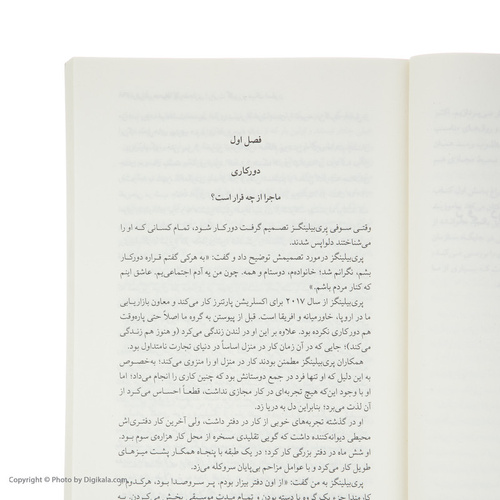 فصل اول
دورکاری
ماجرا از چه قرار است؟
وقتی سوفی پری‌بیلینگز تصمیم گرفت دورکار شود، تمام کسانی که او را
می‌شناختند دلواپس شدند.
پری‌بیلینگز درمورد تصمیمش توضیح داد و گفت: «به هرکی گفتم قراره دورکار
بشم، نگرانم شد؛ خانواده‌م، دوستام و همه. چون من یه آدم اجتماعی‌یم. عاشق اینم
که کنار مردم باشم.»
پری‌بیلینگز از سال ۲۰۱۷ برای اکسلریشن پارتنرز کار می‌کند و معاون بازاریابی
ما در اروپا، خاورمیانه و افریقا است. قبل از پیوستن به گروه ما اصلاً حتی پاره‌وقت
هم دورکاری نکرده بود. علاوه بر این او در لندن زندگی می‌کرد (و هنوز هم زندگی
می‌کند)؛ جایی که در آن زمان کار در منزل اساساً در دنیای تجارت نامتداول بود.
همکاران پری‌بیلینگز مطمئن بودند کار در منزل او را منزوی می‌کند؛ به‌خصوص
به این دلیل که او تنها فرد در جمع دوستانش بود که چنین کاری را انجام می‌داد؛ اما
او با وجود این‌که هیچ تجربه‌ای در کار مجازی نداشت، قطعاً احساس می‌کرد از
آن لذت می‌برد؛ بنابراین دل به دریا زد.
او در گذشته تجربه‌های خوبی از کار در دفتر داشت، ولی آخرین کار دفتری‌اش
محیطی دیوانه‌کننده داشت که گویی تقلیدی مسخره از محل کار هزاره‌ی سوم بود.
او شش ماه در دفتر بزرگی کار کرد؛ در یک طبقه با پنجاه همکار پشت میزهای
طویل کار می‌کرد و با عوامل مزاحم بی‌پایان سروکله می‌زد.
پری‌بیلینگز به من گفت: «از اون دفتر بیزار بودم. پر سروصدا بود. هرکدوم
Copyright © Photo by Digikala.com